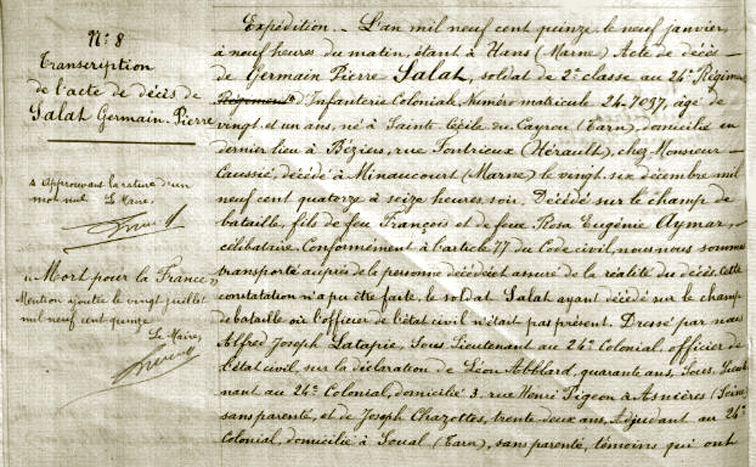 N° 8
Transcription
de l'acte de décès de
Salat Germain-Pierre
Approuvons la rature d'un
mot nul Le Maire,
"Mort pour la France"
Mention ajoutée le vingt juillet
mil neuf cent quinze
Le Maire,
Expédition. - L'an mil neuf cent quinze, le neuf janvier,
à neuf heures du matin, étant à Hans (Marne) Acte de décès -
de Germain Pierre Salat, soldat de 2e classe au 24e Régime
Régiment d'Infanterie Coloniale, Numéro matricule 24-7097, âgé de
vingt et un ans, né à Sainte Cécile du Cayrou (Tarn), domicilié en
dernier lieu à Béziers, rue Fontrieux (Hérault), chez Monsieur -
Caussié, décédé à Minaucourt (Marne) le vingt six décembre mil
neuf cent quatorze à seize heures soir. Décédé sur le champ de
bataille, fils de feu François et de feue Rosa Eugénie Aymar,
célibataire. Conformément à l'article 77 du Code civil, nous nous somme
transporté auprès de la personne décédée et assuré de la réalité du décès, cette
constatation n'a pu être faite, le soldat Salat ayant décédé sur le champ
de bataille où l'officier de l'état civil n'était pas présent. Dressé par nous
Alfred Joseph Latapie, Sous Lieutenant au 24e Colonial, officier de
l'état civil, sur la déclaration de Léon Abblard, quarante ans, Sous Lieute
nant au 24e Colonial, domicilié 3, rue Henri Pigeon à Asnières (Seine)
sans parenté, et de Joseph Chazottes, trente-deux ans, Adjudant au 24e
Colonial, domicilié à Soual (Tarn), sans parenté, témoins qui ont